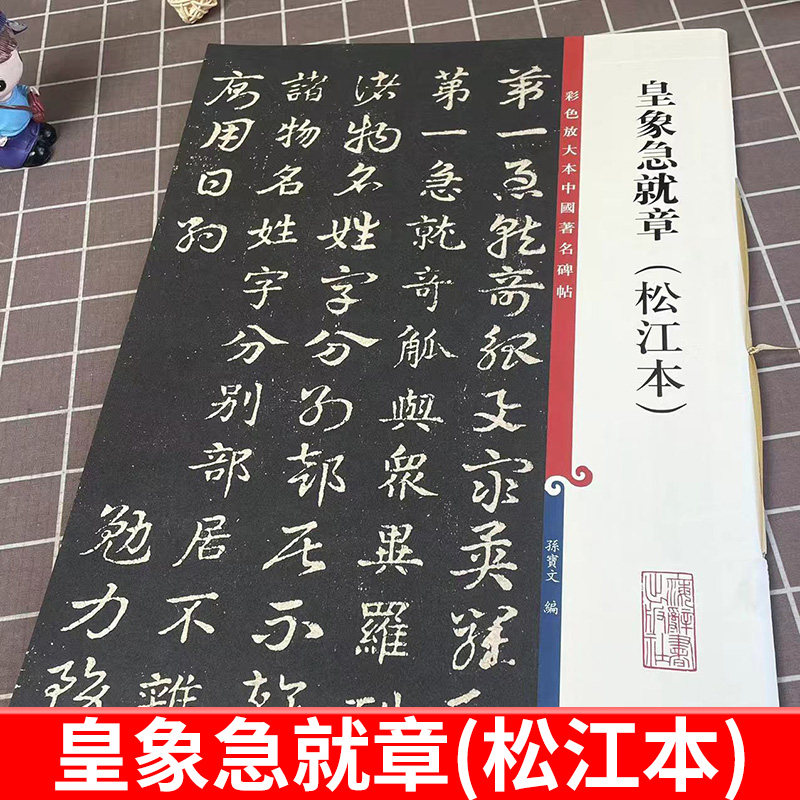 皇象急就章（松江本）
彩色放大本中國著名碑帖
孫寶文 編
海辭書出版社
第一急就奇觚與眾異羅
第一急就奇觚與眾異羅列
諸物名姓字分別部居不雜
諸物名姓字分別部居不雜
用日約
勉力務
皇象急就章(松江本)